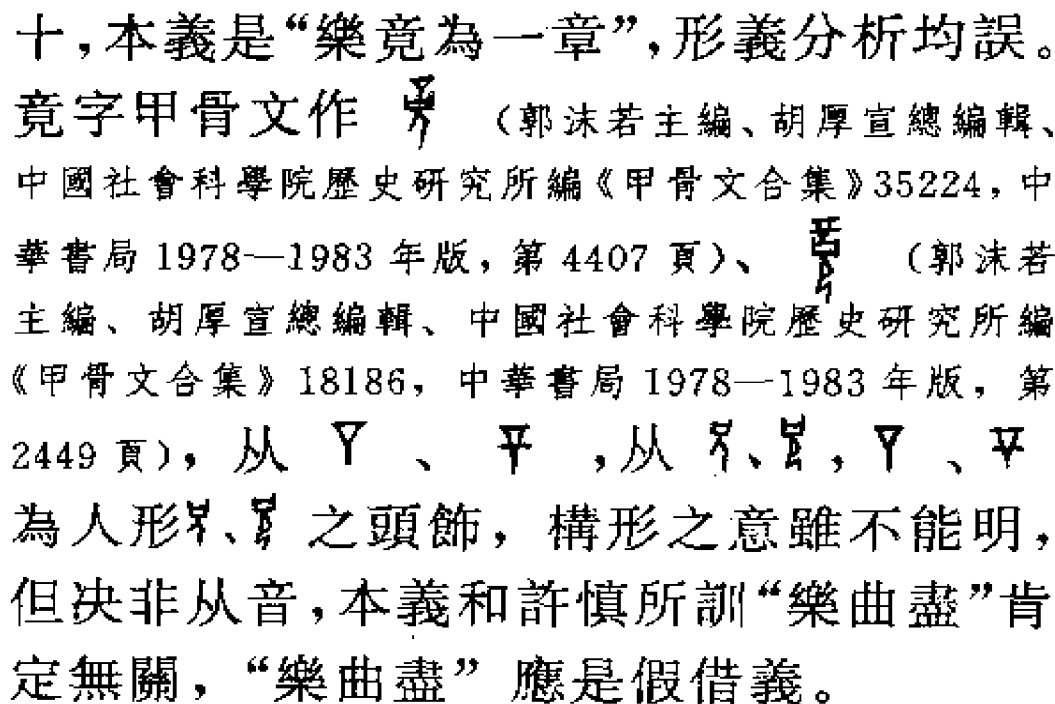 十，本義是“樂竟為一章”，形義分析均誤。
竟字甲骨文作（郭沫若主編、胡厚宣總編輯、
中國社會科學院歷史研究所編《甲骨文合集》35224，中
華書局 1978—1983 年版，第 4407 頁）、（郭沫若
主編、胡厚宣總編輯、中國社會科學院歷史研究所編
《甲骨文合集》18186，中華書局 1978—1983 年版，第
2449 頁），从 、 ，从 、 ， 、
為人形 、 之頭飾，構形之意雖不能明，
但决非从音，本義和許慎所訓“樂曲盡”肯
定無關，“樂曲盡”應是假借義。